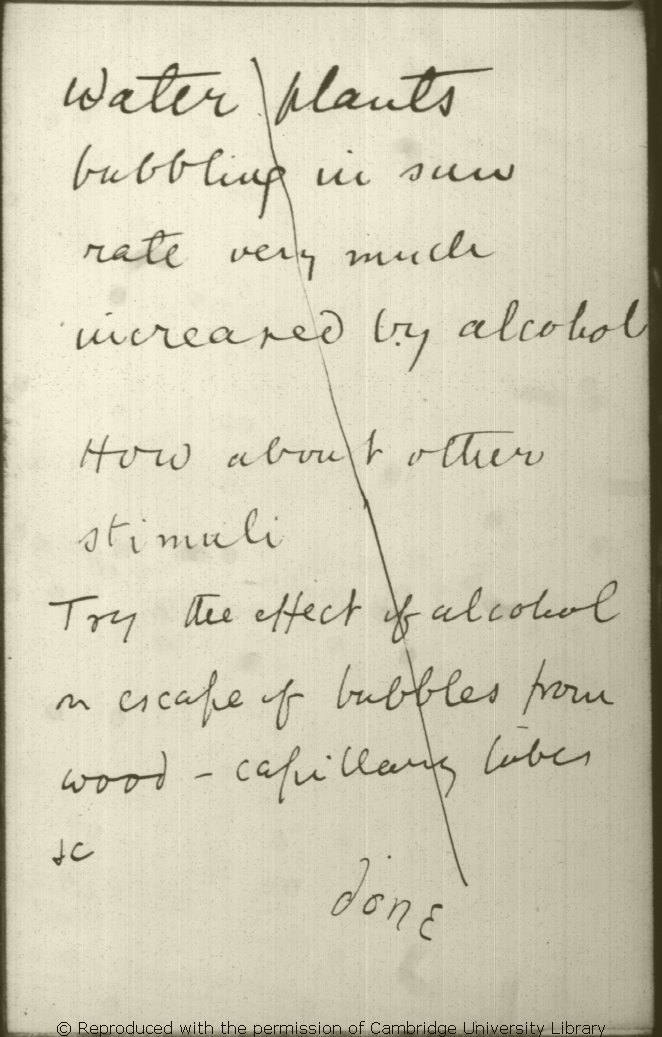 Water plants
bubbling in sun
rate very much
increased by alcohol
How about other
stimuli
Try the effect of alcohol
on escape of bubbles from
wood – capillary tubes
&c
done
© Reproduced with the permission of Cambridge University Library